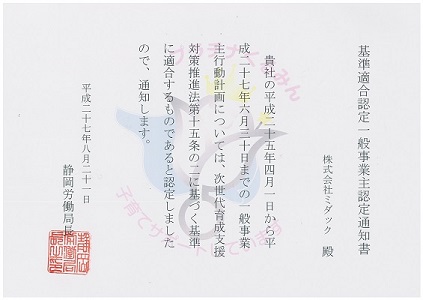 基準適合認定一般事業主認定通知書
株式会社ミダック 殿
貴社の平成二十五年四月一日から平
成二十七年六月三十日までの一般事業
主行動計画については、次世代育成支援
対策推進法第十五条の二に基づく基準
に適合するものであると認定しました
ので、通知します。
平成二十七年八月二十一日
静岡労働局長